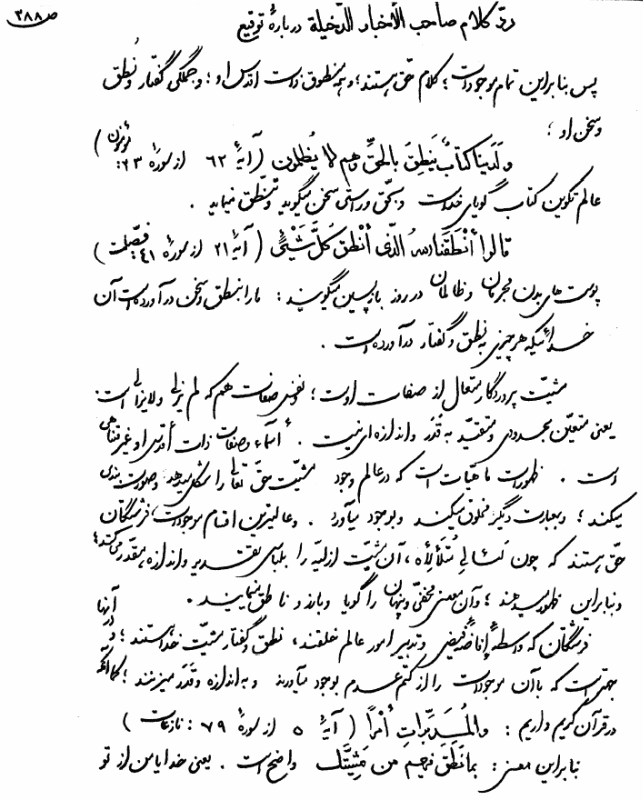 ص ٣٨٨
ردّ کلام صاحب الأخبار الدّخیلة دربارهٔ توقیع
پس بنابراین تمام موجودات؛ کلام حقّ هستند؛ و همه منطوق ذات اقدس او؛ و جملگی گفتار و نطق
و سخن او؛
و لدینا کتاب ینطق بالحقّ و هم لا یظلمون (آیهٔ ٦٢ از سورهٔ ٢٣: مؤمنون)
عالم تکوین کتاب گویای خداست و بحقّ و راستی سخن میگوید و تنطّق مینماید.
قالوا أنطقنا الله الّذی أنطق کلّ شیئ (آیهٔ ٢١ از سورهٔ ٤١: فصّلت)
پوست‌های بدن مجرمان و ظالمان در روز بازپسین میگویند: ما را بنطق و سخن در آورده است آن
خدائیکه هر چیزی به نطق و گفتار در آورده است.
مشیّت پروردگار متعال از صفات اوست؛ و نفس صفات هم که لم یزلی و لایزالی است
یعنی متعیّن بحدودی و متقیّد به قدر و اندازه‌ای نیست. أسماء و صفات ذات أقدس او غیر متناهی
است. ظهورات ماهیّات است که در عالم وجود مشیّت حقّ تعالی را شکل میدهد و صورت بندی
میکند؛ و بعبارت دیگر مخلوق میکند و بوجود میآورد. و عالیترین اقسام موجودات، فرشتگان
حقّ هستند که چون لئالی متلألأه، آن مشیّت ازلیّه را بلباس تقدیر و اندازه، مقدّر می‌کنند؛
و بنابراین ظهور میدهند؛ و آن معنی مخفیّ و پنهان را گویا و بارز و ناطق مینمایند.
فرشتگان که واسطهٔ إفاضهٔ فیض و تدبیر امور عالم خلقند، نطق و گفتار مشیّت خدا هستند؛ و در آنها
جهتی است که با آن موجودات را از کتم عدم بوجود میآورند و به اندازه و قدر میزنند؛ کما اینکه
در قرآن کریم داریم: و المدبّرات أمراً (آیهٔ ٥ از سورهٔ ٧٩: نازعات)
بنابراین معنی: بما نطق فیهم من مشیّتک واضح است. یعنی خدایا من از تو